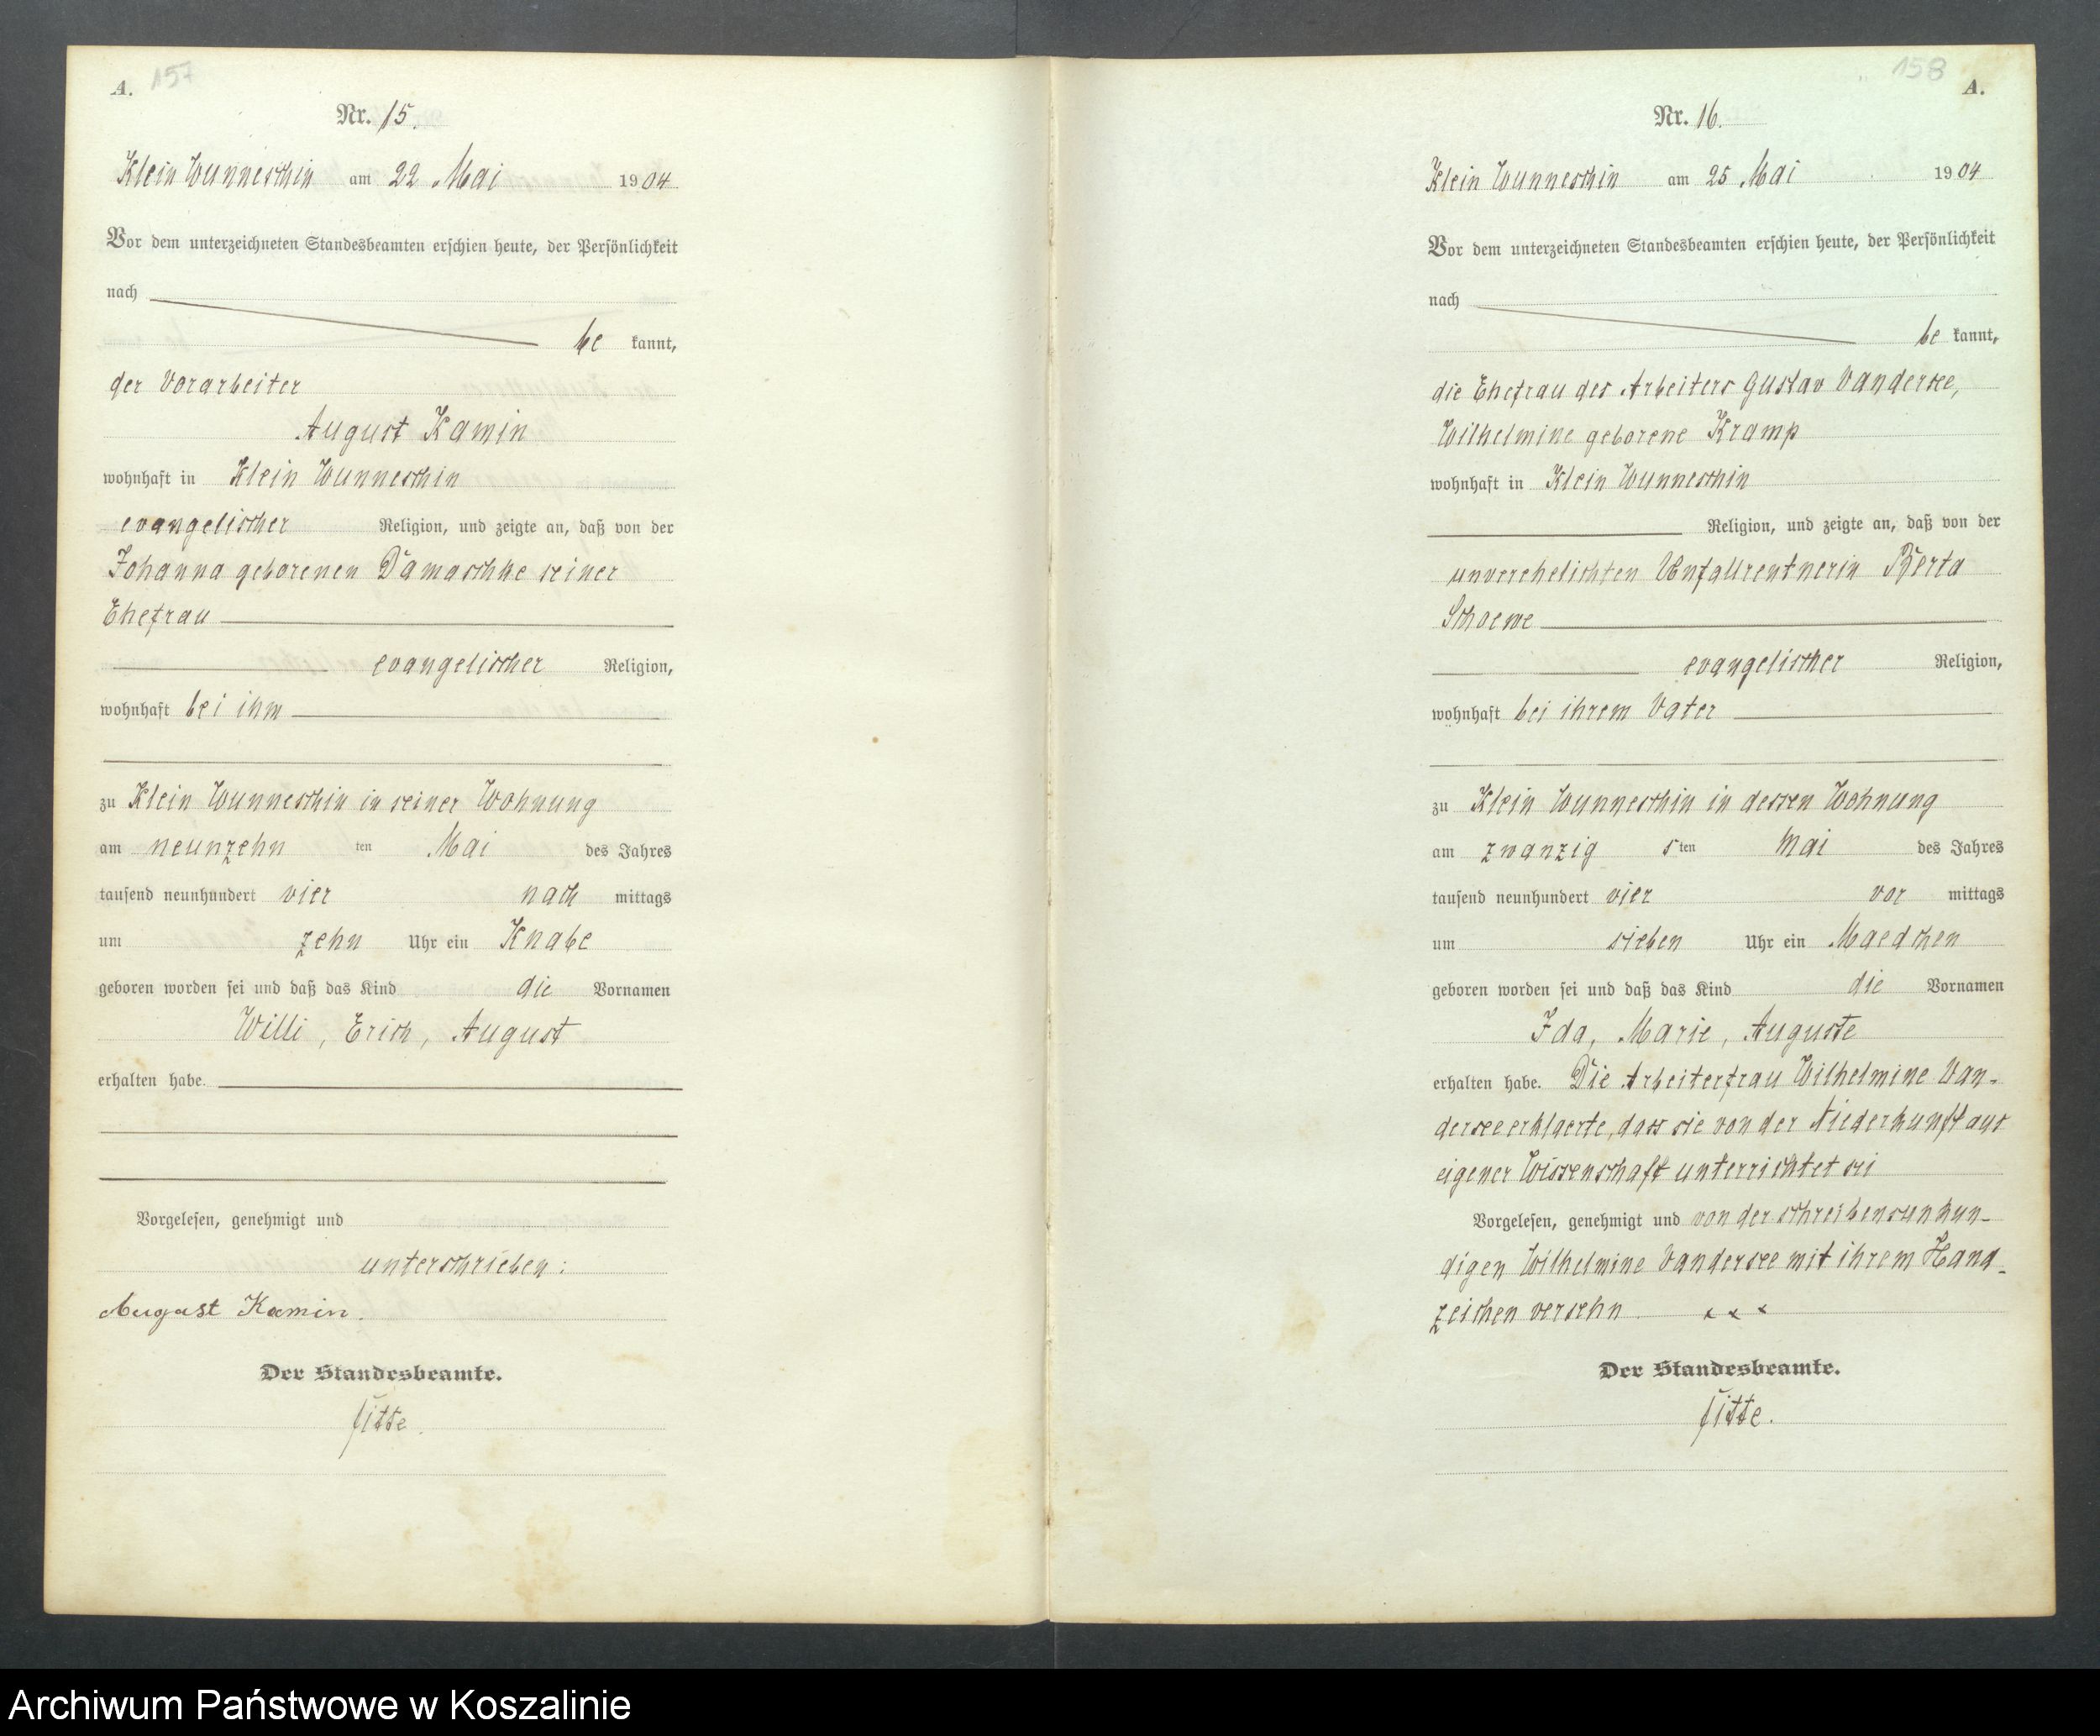 A. 157
Nr. 15.
Klein Wunneschin am 22 Mai 1904
Vor dem unterzeichneten Standesbeamten erschien heute, der Persönlichkeit
nach
be kannt,
der Vorarbeiter
August Kamin
wohnhaft in Klein Wunneschin
evangelischer Religion, und zeigte an, daß von der
Johanna geborenen Damaschke seiner
Ehefrau
evangelischer Religion,
wohnhaft bei ihm
zu Klein Wunneschin in seiner Wohnung
am neunzehn ten Mai des Jahres
tausend neunhundert vier nach mittags
um zehn Uhr ein Knabe
geboren worden sei und daß das Kind die Vornamen
Willi, Erich, August
erhalten habe.
Vorgelesen, genehmigt und
unterschrieben:
August Kamin.
Der Standesbeamte.
Titte.
158 A.
Nr. 16.
Klein Wunneschin am 25 Mai 1904
Vor dem unterzeichneten Standesbeamten erschien heute, der Persönlichkeit
nach
be kannt,
die Ehefrau des Arbeiters Gustav Vandersee,
Wilhelmine geborene Kramp
wohnhaft in Klein Wunneschin
Religion, und zeigte an, daß von der
unverehelichten Unfallrentnerin Berta
Schoewe
evangelischer Religion,
wohnhaft bei ihrem Vater
zu Klein Wunneschin in dessen Wohnung
am zwanzig sten Mai des Jahres
tausend neunhundert vier vor mittags
um sieben Uhr ein Maedchen
geboren worden sei und daß das Kind die Vornamen
Ida, Marie, Auguste
erhalten habe. Die Arbeiterfrau Wilhelmine Van-
dersee erklaerte, dass sie von der Niederkunft aus
eigener Wissenschaft unterrichtet sei
Vorgelesen, genehmigt und von der schreibensunkun-
digen Wilhelmine Vandersee mit ihrem Hand-
zeichen versehn. x x x
Der Standesbeamte.
Titte.
Archiwum Państwowe w Koszalinie